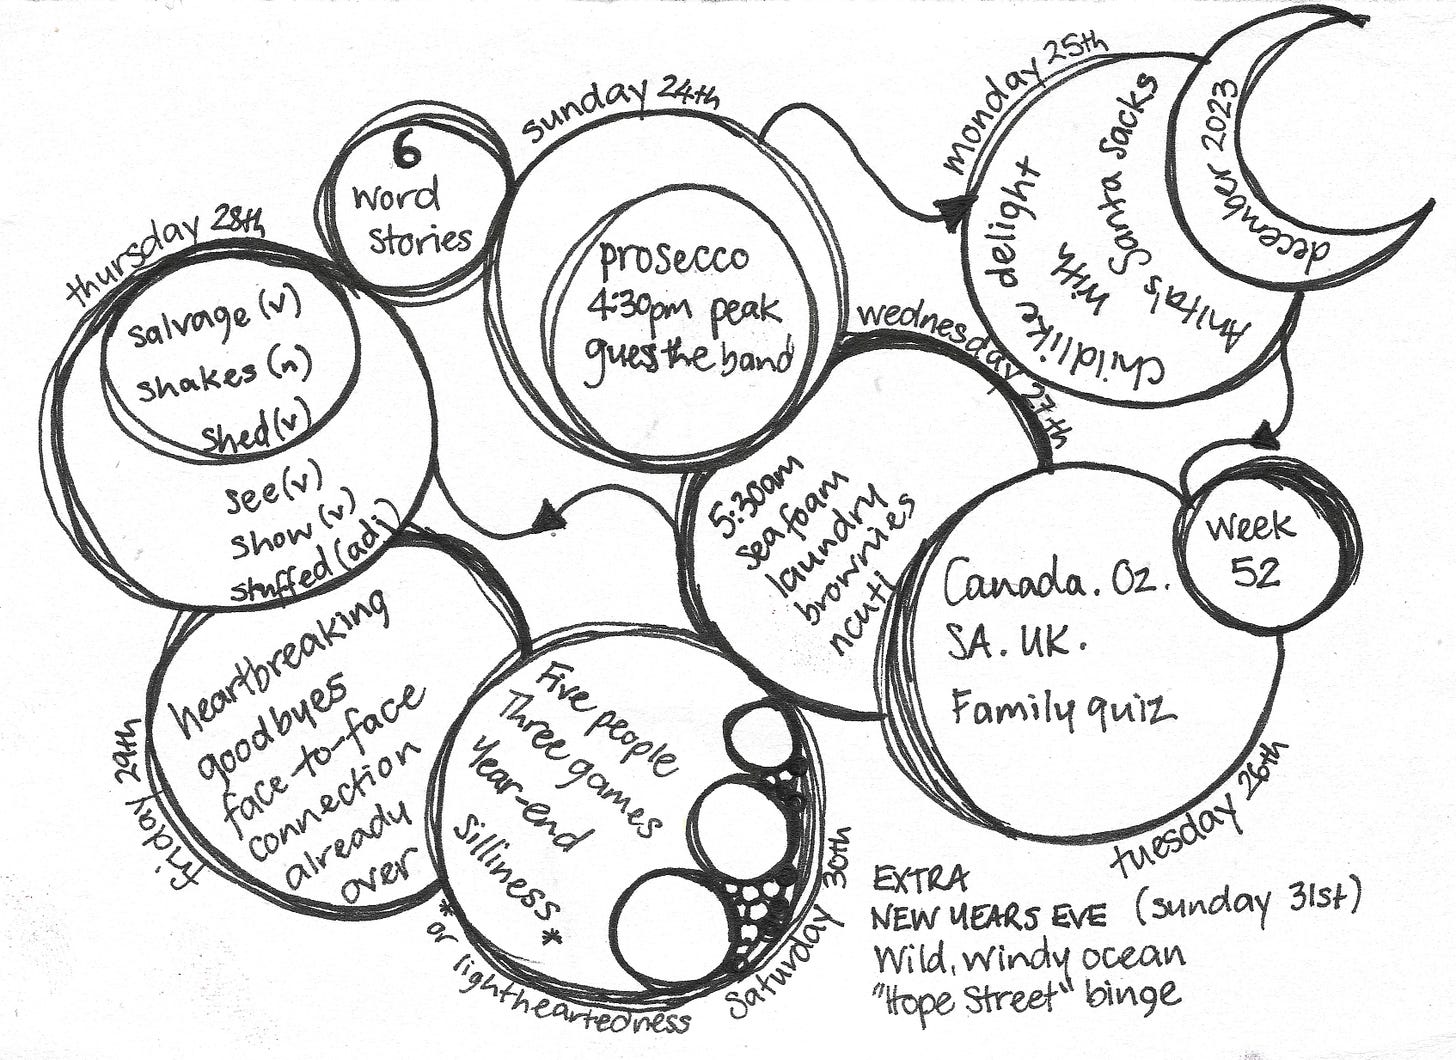 6
word
stories
sunday 24th
prosecco
4:30pm peak
guess the band
monday 25th
Childlike delight
with
Anita's Santa Sacks
december 2023
week
52
tuesday 26th
Canada. Oz.
SA. UK.
Family quiz
wednesday 27th
5:30am
seafoam
laundry
brownies
ncuti
thursday 28th
salvage (v)
shakes (n)
shed (v)
see (v)
show (v)
stuffed (adj)
friday 29th
heartbreaking
goodbyes
face-to-face
connection
already
over
saturday 30th
Five people
Three games
Year-end
Silliness*
* or lightheartedness
EXTRA
NEW YEARS EVE (sunday 31st)
Wild, windy ocean
"Hope Street" binge